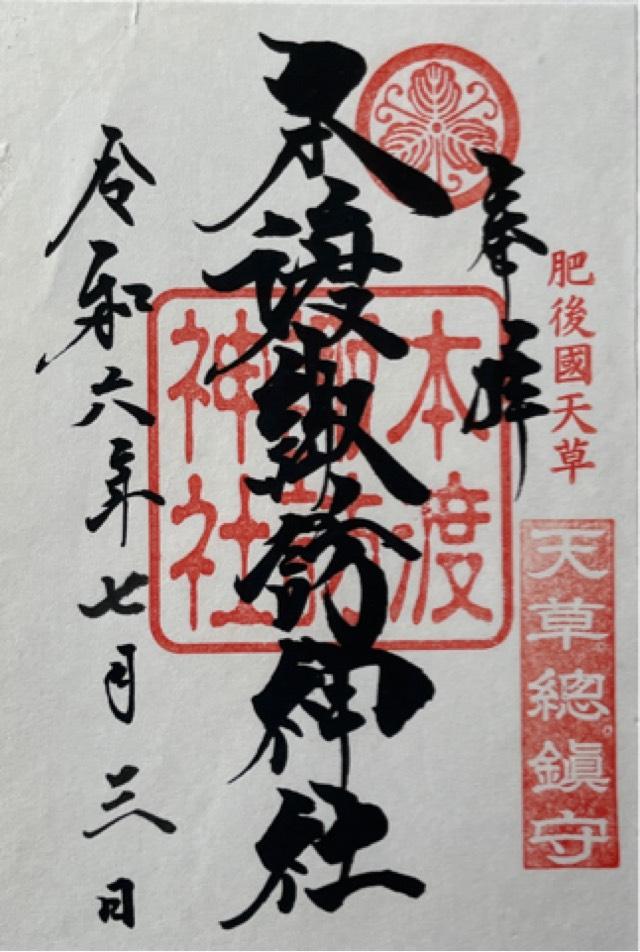 奉拝
肥後國天草
天草總鎮守
本渡諏訪神社
本渡諏訪神社
令和六年七月三日